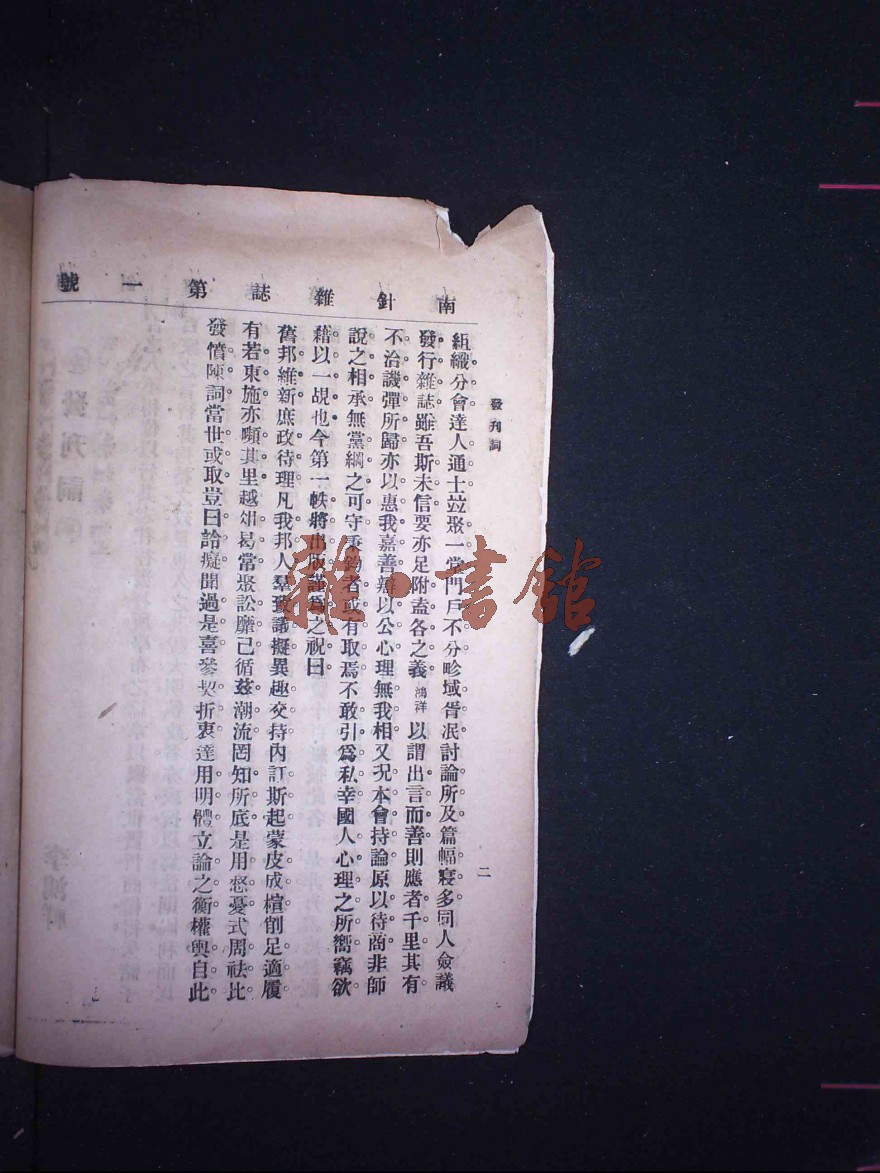 南針雜誌第一號
發刊詞
二
組織分會達人通士竝聚一堂門戶不分畛域胥泯討論所及篇幅寖多同人僉議
發行雜誌雖吾斯未信要亦足附盍各之義鴻祥以謂出言而善則應者千里其有
不洽譏彈所歸亦以惠我嘉善辨以公心理無我相又況本會持論原以待商非師
說之相承無黨綱之可守秉鈞者或有取焉不敢引爲私幸國人心理之所嚮竊欲
藉以一覘也今第一帙將出版謹爲之祝曰
舊邦維新庶政待理凡我邦人羣致議擬異趣交持內訂斯起蒙皮成楦削足適履
有若東施亦嚬其里越俎曷當聚訟靡已循茲潮流罔知所底是用惄憂式周祛比
發憤陳詞當世或取豈曰詅癡聞過是喜參契折衷達用明體立論之衡權輿自此
雜·書館